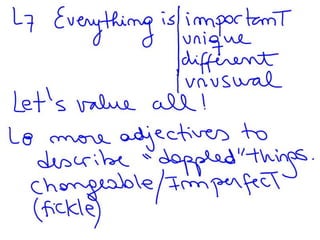 L7 Everything is | importanT
unique
different
unusual
Let's value all!
Lo more adjectives to
describe "dappled" things.
changeable/ImperfecT
(fickle)